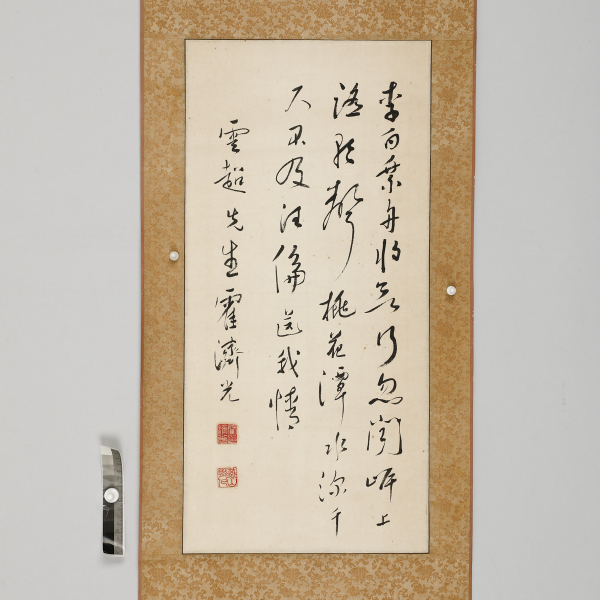 李白乘舟將欲行忽聞岸上
踏歌聲桃花潭水深千
尺不及汪倫送我情
雲超先生 霍濟光